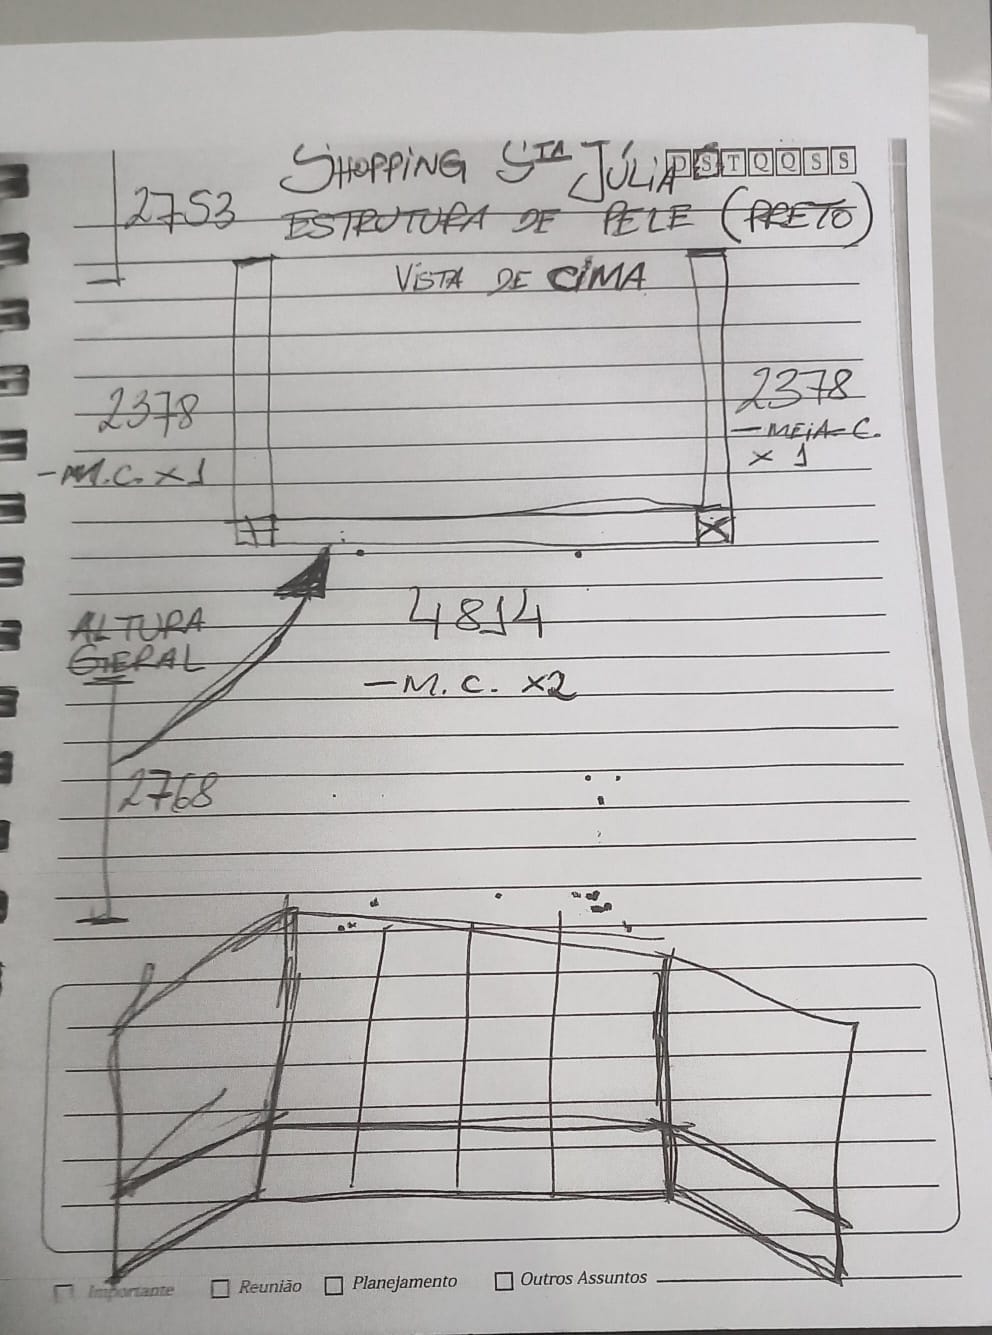 SHOPPING STA JÚLIA
D S T Q Q S S
2753
ESTRUTURA DE PELE (PRETO)
VISTA DE CIMA
2378
- M.C. x 1
2378
- MEIA-C.
x 1
ALTURA
GERAL
4814
- M.C. x2
2768
Importante
Reunião
Planejamento
Outros Assuntos